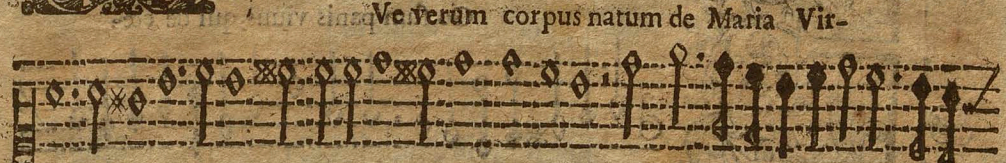 Ve verum corpus natum de Maria Vir-